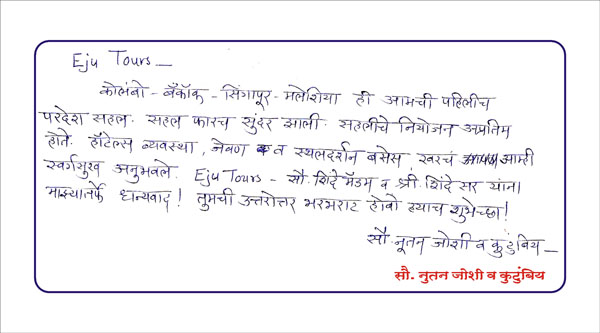 Eju Tours —
कोलंबो - बँकॉक - सिंगापूर - मलेशिया ही आमची पहिलीच
परदेश सहल. सहल फारच सुंदर झाली. सहलीचे नियोजन अप्रतिम
होते. हॉटेल्स व्यवस्था, जेवण व स्थलदर्शन बसेस, खरचं आम्ही
स्वर्गसुख अनुभवले. Eju Tours - सौ. शिंदे मॅडम व श्री. शिंदे सर यांना
माझ्यातर्फे धन्यवाद! तुमची उत्तरोत्तर भरभराट होवो ह्याच शुभेच्छा!
सौ. नूतन जोशी व कुटुंबिय —
सौ. नुतन जोशी व कुटुंबिय